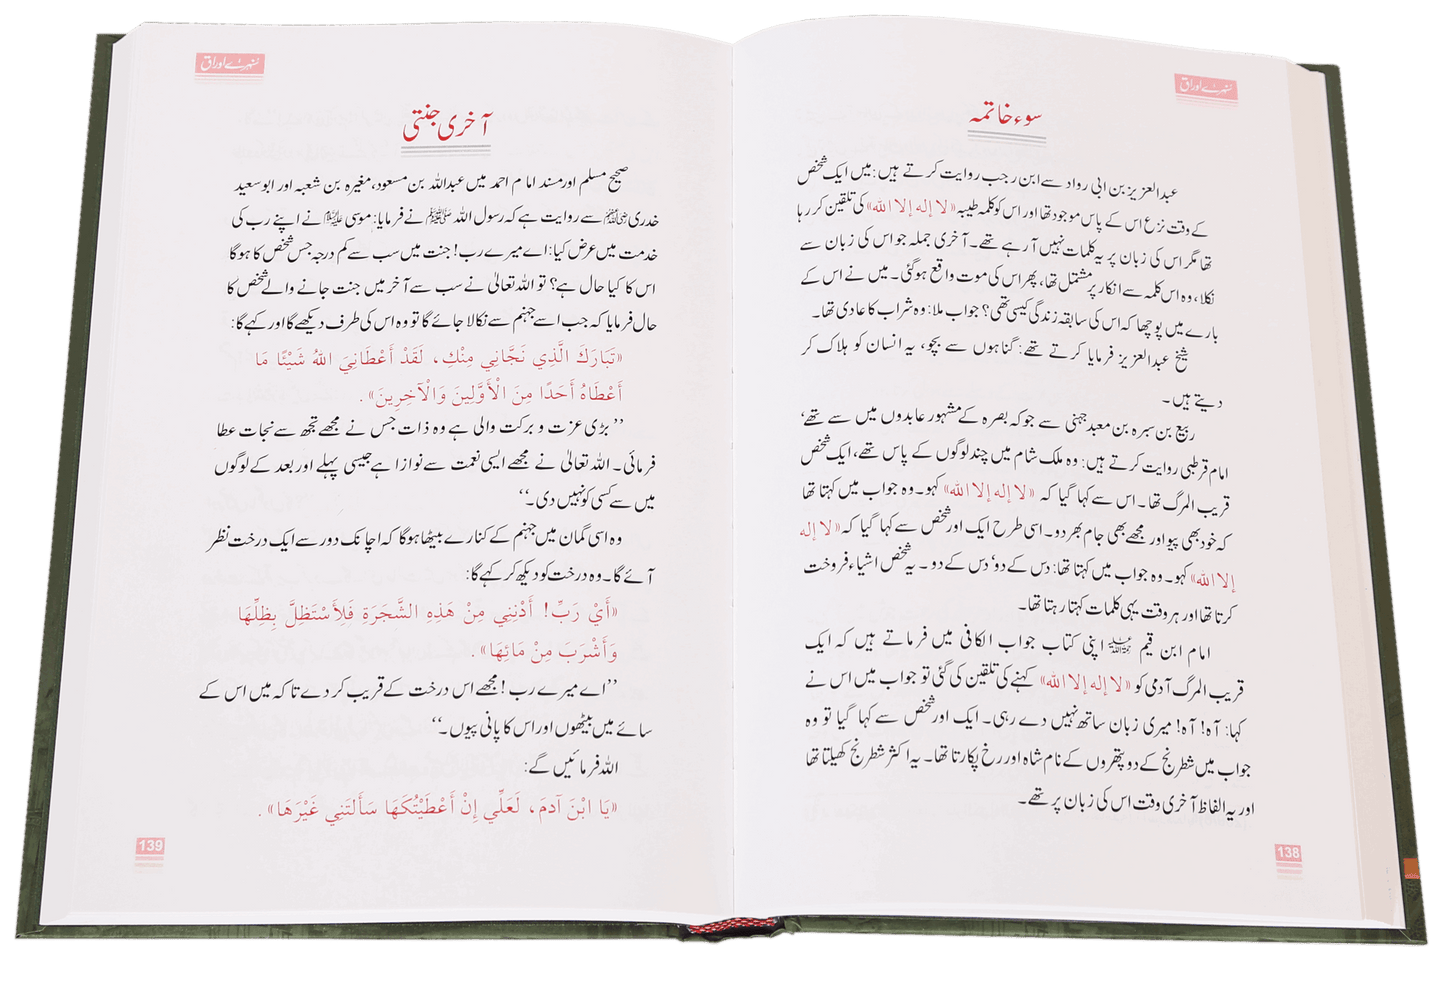 سنہرے اوراق
سوء خاتمہ
عبدالعزیز بن ابی رواد سے ابن رجب روایت کرتے ہیں: میں ایک شخص
کے وقت نزع اس کے پاس موجود تھا اور اس کو کلمہ طیبہ «لا إله إلا الله» کی تلقین کر رہا
تھا مگر اس کی زبان پر یہ کلمات نہیں آ رہے تھے۔ آخری جملہ جو اس کی زبان سے
نکلا، وہ اس کلمہ سے انکار پر مشتمل تھا، پھر اس کی موت واقع ہوگئی۔ میں نے اس کے
بارے میں پوچھا کہ اس کی سابقہ زندگی کیسی تھی؟ جواب ملا: وہ شراب کا عادی تھا۔
شیخ عبدالعزیز فرمایا کرتے تھے: گناہوں سے بچو، یہ انسان کو ہلاک کر
دیتے ہیں۔
ربیع بن سبرہ بن معبد جہنی سے جو کہ بصرہ کے مشہور عابدوں میں سے تھے،
امام قرطبی روایت کرتے ہیں: وہ ملک شام میں چند لوگوں کے پاس تھے، ایک شخص
قریب المرگ تھا۔ اس سے کہا گیا کہ «لا إله إلا الله» کہو۔ وہ جواب میں کہتا تھا
کہ خود بھی پیو اور مجھے بھی جام بھر دو۔ اسی طرح ایک اور شخص سے کہا گیا کہ «لا إله
إلا الله» کہو۔ وہ جواب میں کہتا تھا: دس کے دو، دس کے دو۔ یہ شخص اشیاء فروخت
کرتا تھا اور ہر وقت یہی کلمات کہتا رہتا تھا۔
امام ابن قیم رحمہ اللہ اپنی کتاب جواب الکافی میں فرماتے ہیں کہ ایک
قریب المرگ آدمی کو «لا إله إلا الله» کہنے کی تلقین کی گئی تو جواب میں اس نے
کہا: آہ! آہ! میری زبان ساتھ نہیں دے رہی۔ ایک اور شخص سے کہا گیا تو وہ
جواب میں شطرنج کے دو پتھروں کے نام شاہ اور رخ پکارتا تھا۔ یہ اکثر شطرنج کھیلتا تھا
اور یہ الفاظ آخری وقت اس کی زبان پر تھے۔
138
سنہرے اوراق
آخری جنتی
صحیح مسلم اور مسند امام احمد میں عبداللہ بن مسعود، مغیرہ بن شعبہ اور ابو سعید
خدری رضی اللہ عنہم سے روایت ہے کہ رسول اللہ ﷺ نے فرمایا: موسی علیہ السلام نے اپنے رب کی
خدمت میں عرض کیا: اے میرے رب! جنت میں سب سے کم درجہ جس شخص کا ہوگا
اس کا کیا حال ہے؟ تو اللہ تعالیٰ نے سب سے آخر میں جنت جانے والے شخص کا
حال فرمایا کہ جب اسے جہنم سے نکالا جائے گا تو وہ اس کی طرف دیکھے گا اور کہے گا:
«تَبَارَكَ الَّذِي نَجَّانِي مِنْكِ، لَقَدْ أَعْطَانِيَ اللهُ شَيْئًا مَا
أَعْطَاهُ أَحَدًا مِنَ الْأَوَّلِينَ وَالْآخِرِينَ».
’’بڑی عزت و برکت والی ہے وہ ذات جس نے مجھے تجھ سے نجات عطا
فرمائی۔ اللہ تعالیٰ نے مجھے ایسی نعمت سے نوازا ہے جیسی پہلے اور بعد کے لوگوں
میں سے کسی کو نہیں دی۔‘‘
وہ اسی گمان میں جہنم کے کنارے بیٹھا ہوگا کہ اچانک دور سے ایک درخت نظر
آئے گا۔ وہ درخت کو دیکھ کر کہے گا:
«أَيْ رَبِّ! أَدْنِنِي مِنْ هَذِهِ الشَّجَرَةِ فَلِأَسْتَظِلَّ بِظِلِّهَا
وَأَشْرَبَ مِنْ مَائِهَا».
’’اے میرے رب! مجھے اس درخت کے قریب کر دے تاکہ میں اس کے
سائے میں بیٹھوں اور اس کا پانی پیوں۔‘‘
اللہ فرمائیں گے:
«يَا ابْنَ آدَمَ، لَعَلِّي إِنْ أَعْطَيْتُكَهَا سَأَلْتَنِي غَيْرَهَا».
139